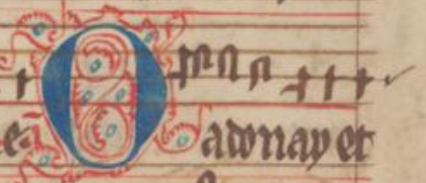 O adonay et